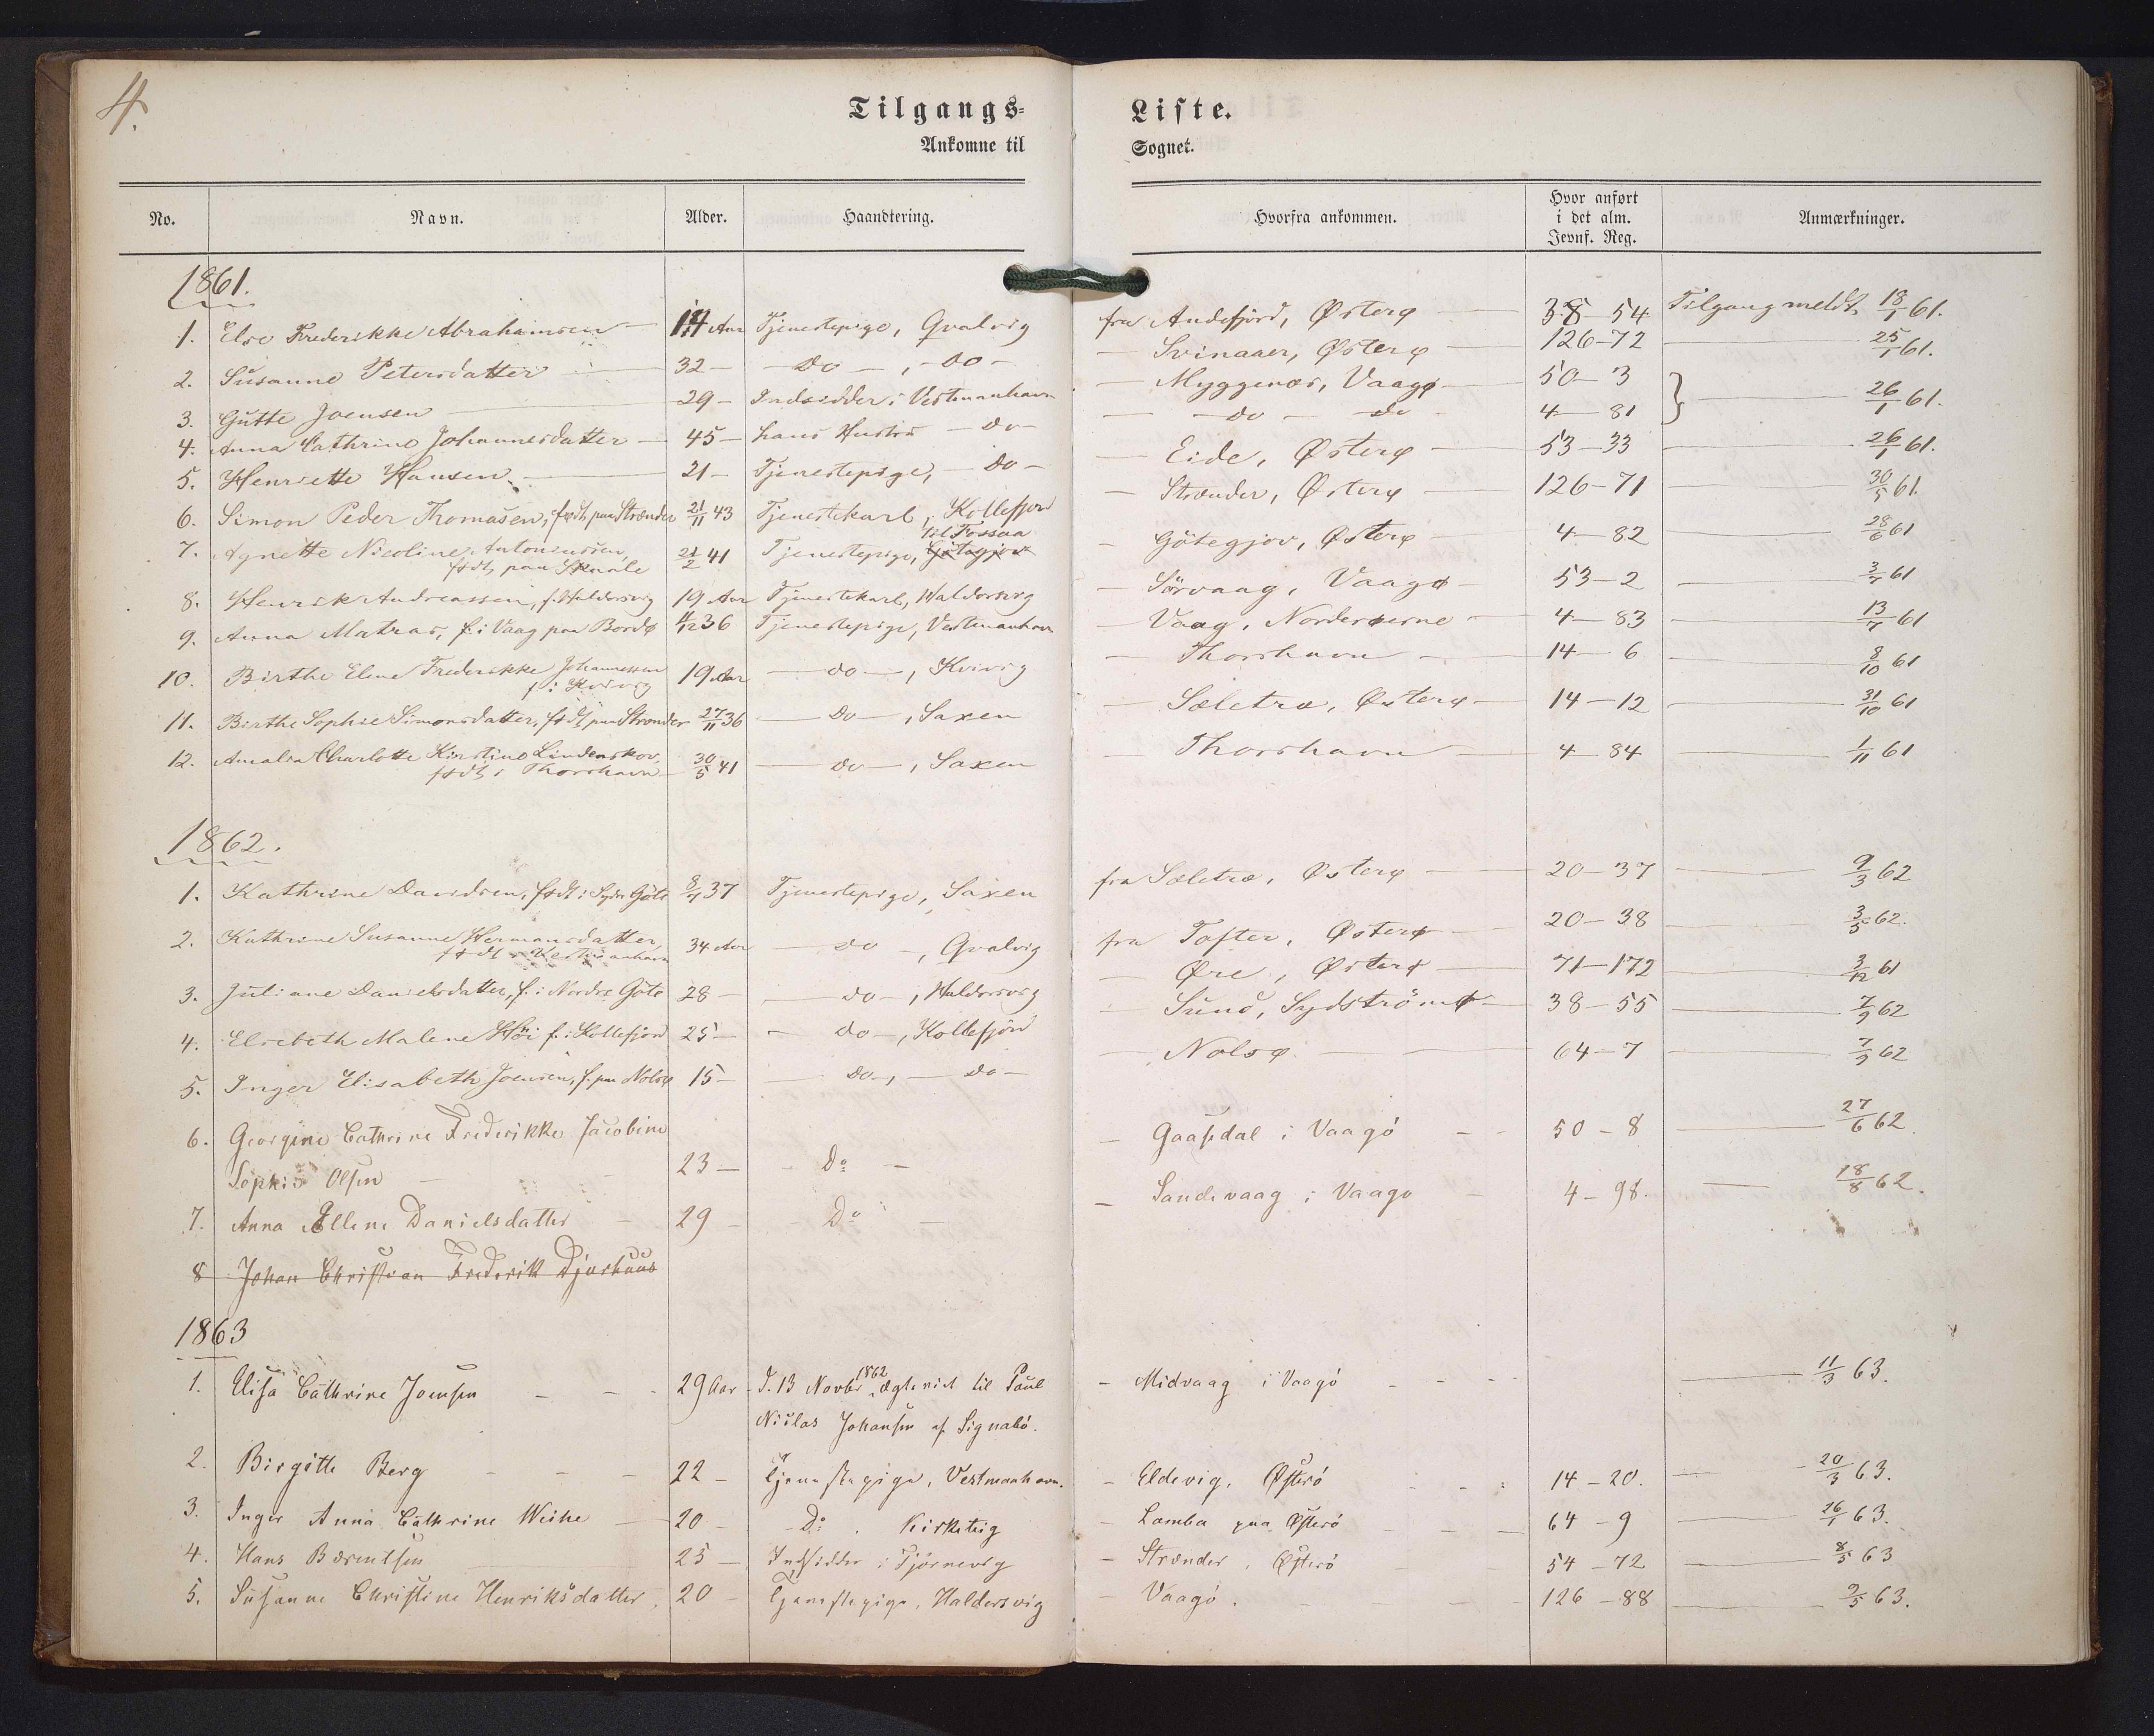 4.
Tilgangs= Liste.
Ankomne til Sognet.
No. Navn. Alder. Haandtering. Hvorfra ankommen. Hvor anført i det alm. Jevnf. Reg. Anmærkninger.
1861.
1. Else Frederikke Abrahamsen 14 Aar Tjenestepige, Qvalvig fra Andefjord, Østerø 38-54 Tilgang meldt 18/1 61.
2. Susanne Petersdatter 32 - Do - , - Do - - Svinaaer, Østerø 126-72 25/1 61.
3. Gutte Joensen 29 - Indsidder i Vestmanhavn - Myggenæs, Vaagø 50-3 } 26/1 61.
4. Anna Cathrine Johannesdatter 45 - hans Hustru - Do - - Do - Do 4-81
5. Henriette Hansen 21 - Tjenestepige, - Do - - Eide, Østerø 53-33 26/1 61.
6. Simon Peder Thomasen, født paa Strænder 21/11 43 Tjenestekarl, Kollefjord - Strænder, Østerø 126-71 30/5 61.
7. Agnette Nicoline Antoniussen, født paa Skaale 21/2 41 Tjenestepige, Götegjov til Fossaa - Götegjov, Østerø 4-82 28/6 61
8. Henrik Andreassen, f. Haldorsvig 19 Aar Tjenestekarl, Haldorsvig - Sörvaag, Vaagø 53-2 3/7 61
9. Anna Matras, f. i Vaag paa Bordø 4/12 36 Tjenestepige, Vestmanhavn - Vaag, Norderøerne 4-83 13/7 61
10. Birthe Elene Frederikke Johannessen f. i Kvivig 19 Aar - Do - , Kvivig - Thorshavn 14-6 8/10 61
11. Birthe Sophie Simonsdatter, født paa Strænder 27/11 36 - Do - , Saxen - Sæletræ, Østerø 14-12 31/10 61
12. Amalia Charlotte Kirstine Lindenskov, født i Thorshavn 30/5 41 - Do - , Saxen - Thorshavn 4-84 1/11 61
1862.
1. Kathrine Davidsen, født i Syder Göte 8/7 37 Tjenestepige, Saxen fra Sæletræ, Østerø 20-37 9/3 62
2. Kathrine Susanne Hermansdatter, født i Vestmanhavn 34 Aar - Do - , Qvalvig fra Tofter, Østerø 20-38 3/5 62.
3. Juliane Danielsdatter, f. i Nordre Göte 28 - - Do - , Haldorsvig - Øre, Østerø 71-172 3/12 61
4. Elsebeth Malene Höi f. i Kollefjord 25 - - Do - , Kollefjord - Sund, Sydströmø 38-55 7/9 62
5. Inger Elisabeth Joensen, f. paa Nolsø 15 - - Do - , - Do - - Nolsø. 64-7 7/9 62
6. Georgine Cathrine Frederikke Jacobine
Sophie Olsen 23 - Do - - Gaasedal i Vaagö 50-8 27/6 62.
7. Anna Ellene Danielsdatter 29 - Do - - Sandevaag i Vaagö 4-98. 18/8 62.
8 Johan Christian Frederik Djurhuus
1863
1. Elisa Cathrine Joensen 29 Aar - D. 13 Novbr 1862 ægteviet til Poul - Midvaag i Vaagö 11/3 63.
Niclas Johansen af Signabö.
2. Birgitte Berg 22 - Tjenestepige, Vestmanhavn. - Eldevig, Østerö 14-20. 20/3 63.
3. Inger Anna Cathrine Weihe 20 - Do. Kirketeig - Lamba paa Østerö 64-9 26/1 63.
4. Hans Bærentsen 25 - Indsidder i Tjörnevig - Strænder, Østerö 54-72 8/5 63
5. Susanne Christine Henriksdatter. 20 - Tjenestepige, Haldersvig - Vaagö. 126-88 9/5 63.